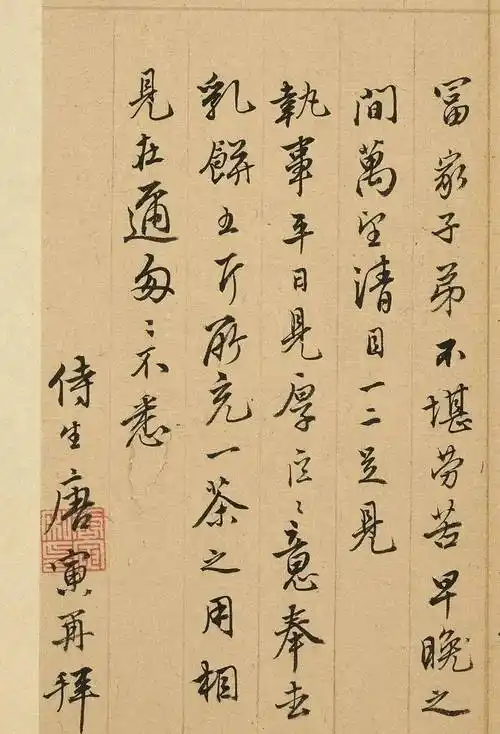 冨家子弟不堪劳苦早晚之
間萬望清目一二足見
執事平日見厚区〻意奉去
乳餅五斤所充一茶之用相
見在邇匆〻不悉
侍生唐寅再拜